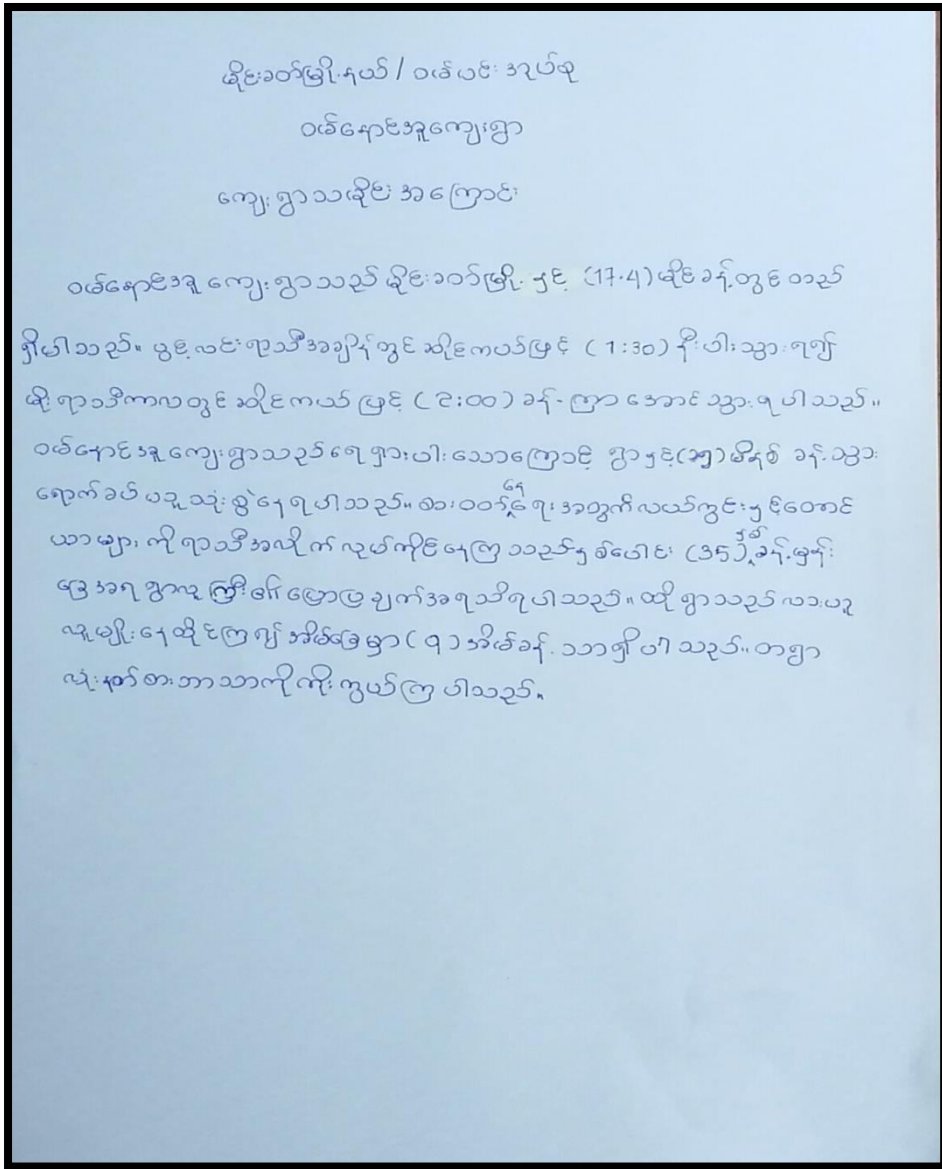 မိုင်းခတ်မြို့နယ် / ဝမ်ယင်း အုပ်စု
ဝမ်နောင်အူကျေးရွာ
ကျေးရွာသမိုင်း အကြောင်း
ဝမ်နောင်အူ ကျေးရွာသည် မိုင်းခတ်မြို့ နှင့် (17.4) မိုင်ခန့်တွင် တည်
ရှိပါသည်။ ပွင့်လင်းရာသီအချိန်တွင် ဆိုင်ကယ်ဖြင့် (1:30) နီးပါးသွားရ၍
မိုးရာသီကာလတွင် ဆိုင်ကယ် ဖြင့် (2:00) ခန့် ကြာ အောင် သွားရပါသည်။
ဝမ်နောင်အူ ကျေးရွာသည် ရေရှားပါးသောကြောင့် ရွာနှင့် မိနစ် ခန့် သွား
ရောက်ခပ် ယူသုံးစွဲနေရပါသည်။ စားဝတ်နေရေးအတွက် လယ်ကွင်းနှင့်တောင်
ယာများ ကိုရာသီအလိုက် လုပ်ကိုင်နေကြသည်နှစ်ပေါင်း (35) နှစ်ခန့်မှန်း
ခြေအရ ရွာလူကြီး၏ ပြောပြချက်အရသိရပါသည်။ ထိုရွာသည် လားဟူ
လူမျိုးနေထိုင်ကြ၍ အိမ်ခြေမှာ (၅) အိမ်ခန့် သာရှိပါသည်။ တရွာ
လုံးနတ်စားဘာသာကိုကိုးကွယ်ကြပါသည်။